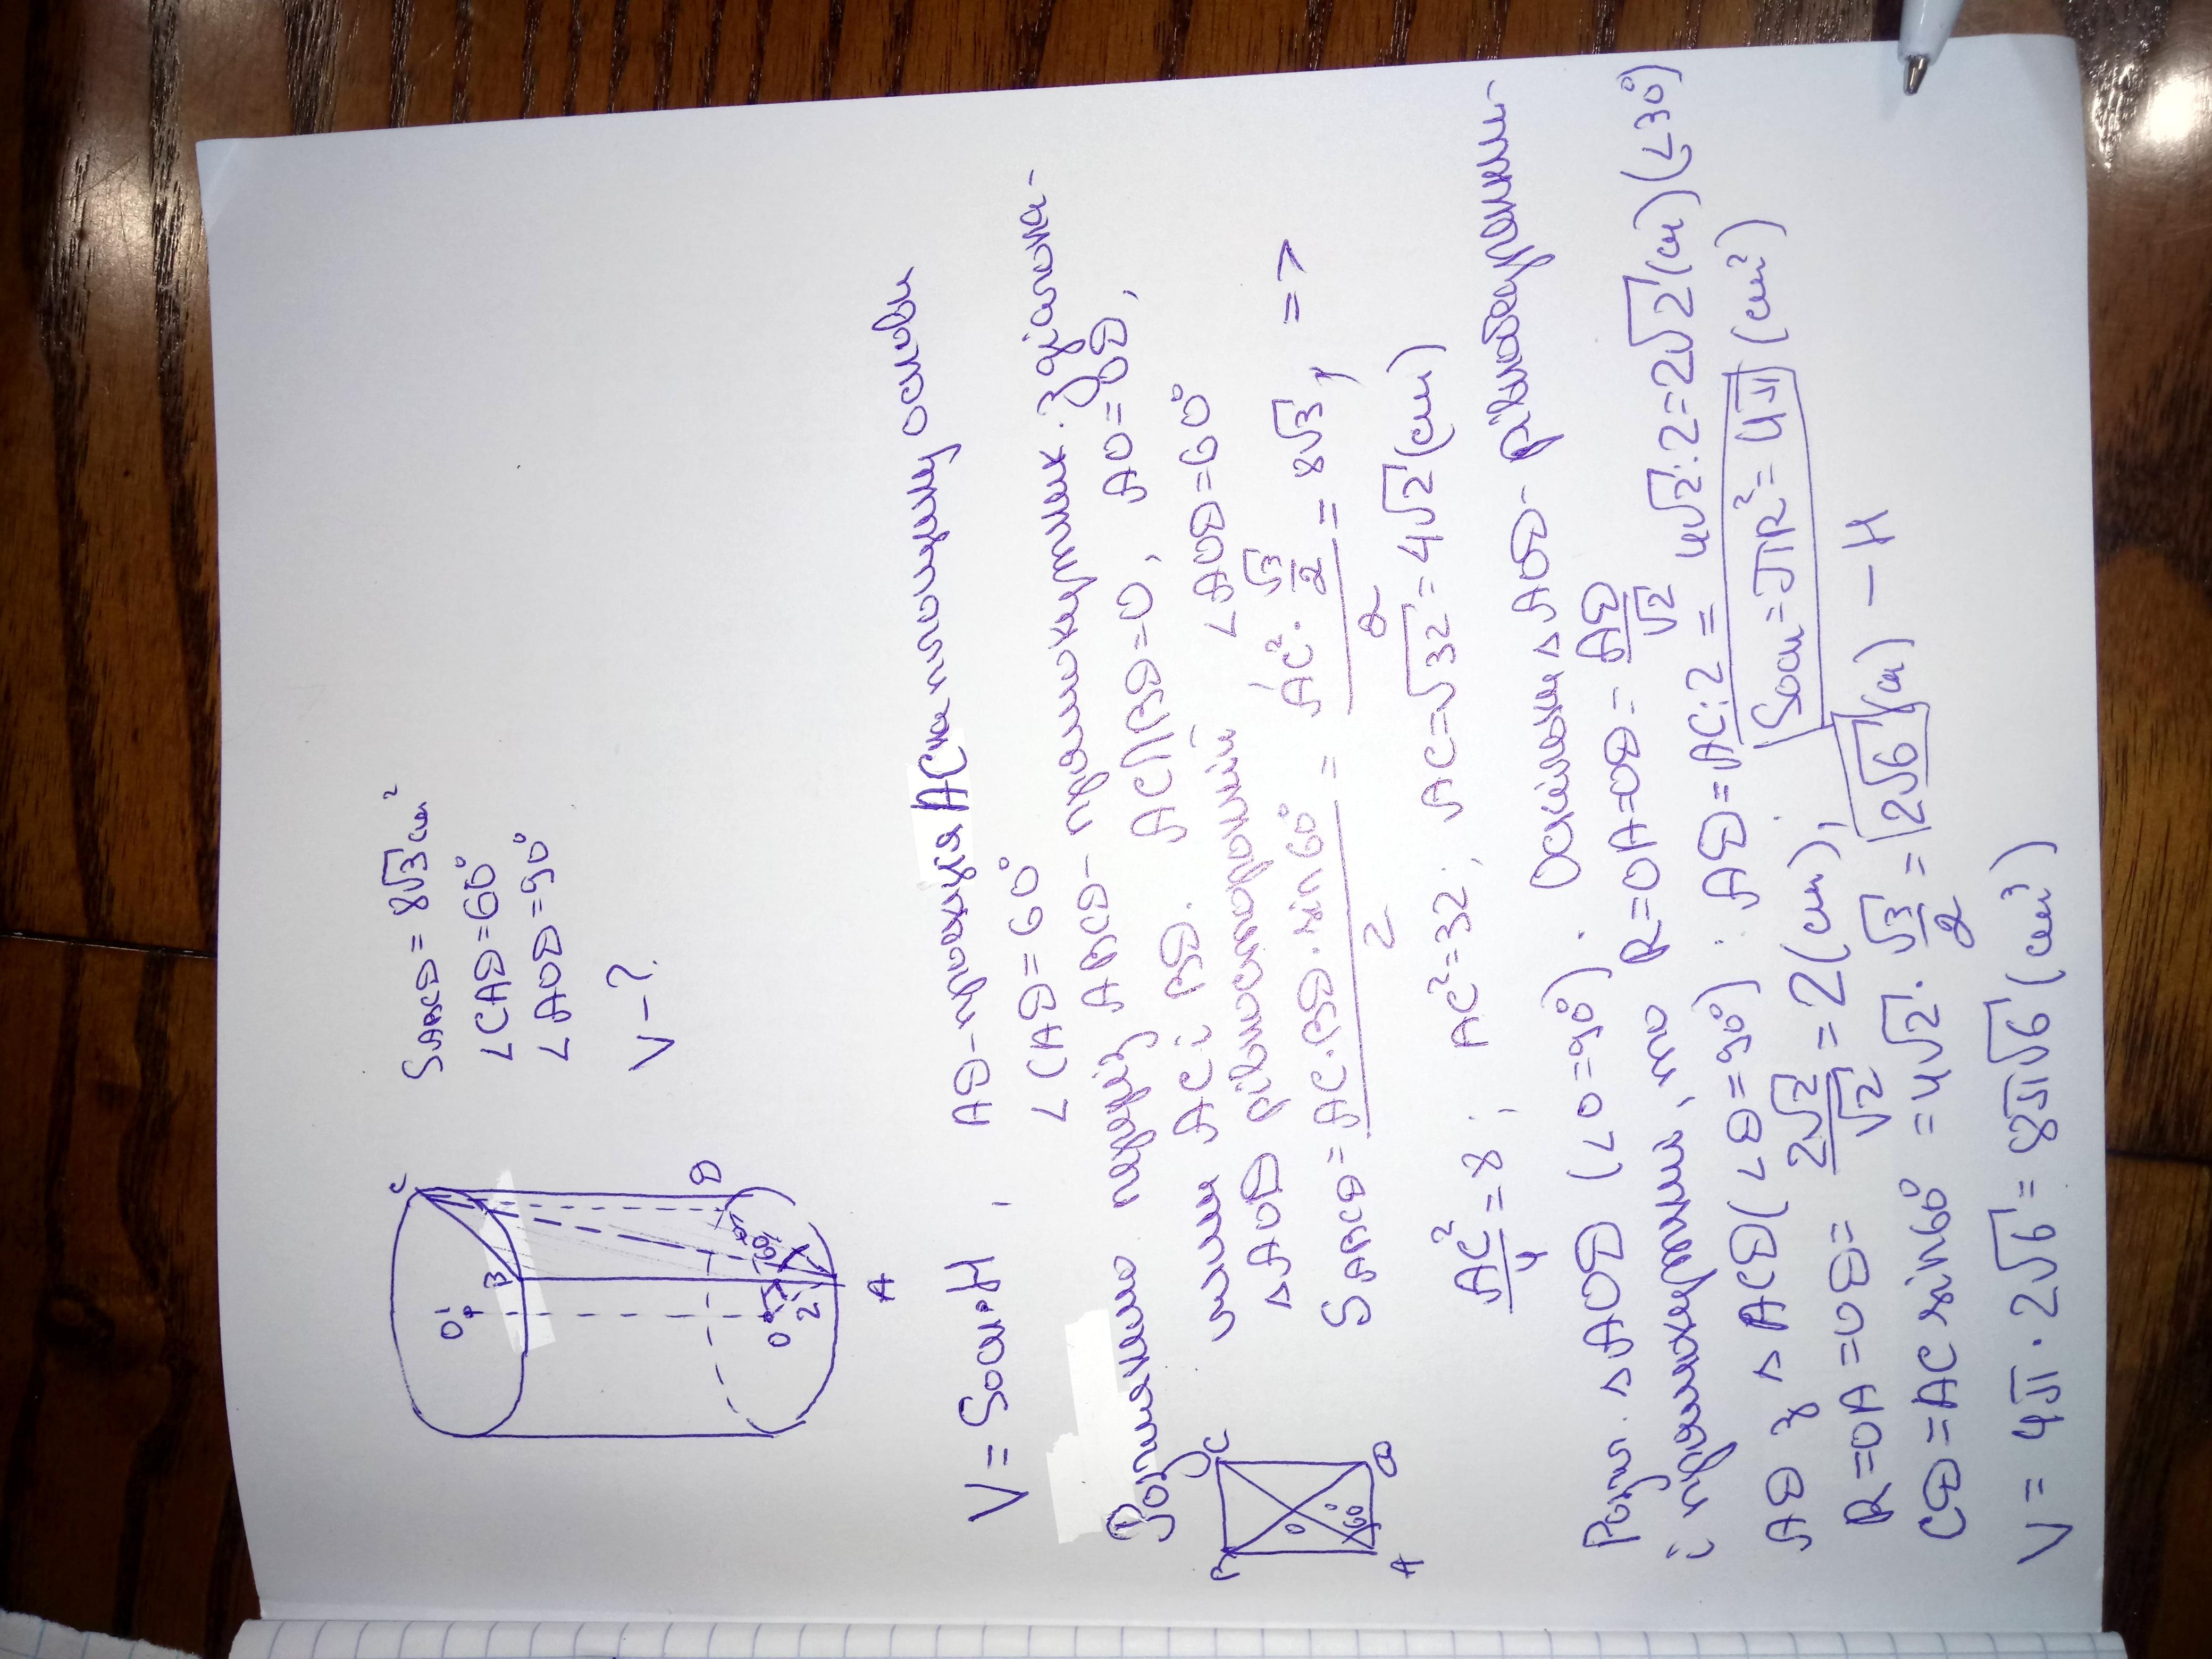 S ABCD = 8√3 см²
∠CAD = 60°
∠AOD = 90°
V - ?
C
O₁
B
D
60°
O
2
A
V = Sосн·H, AD - проекція AC на площину основи
∠CAD = 60°
Розглянемо переріз ABCD - прямокутник з діагона-
лями AC і BD. AC∩BD = O, AO = OD,
ΔAOD рівносторонній ∠AOD = 60°
S ABCD = AC·BD·sin60° / 2 = AC²·√3/2 / 2 = 8√3, =>
B
C
O
60°
A
D
AC²/4 = 8; AC² = 32; AC = √32 = 4√2 (см)
Розгл. ΔAOD (∠O = 90°). Оскільки ΔAOD - рівнобедрений
і прямокутний, то R = OA = OD = AD/√2
AD з ΔACD (∠D = 90°): AD = AC:2 = 4√2:2 = 2√2 (см) (∠30°)
R = OA = OD = 2√2/√2 = 2 (см), Sосн = πR² = 4π (см²)
CD = AC sin60° = 4√2·√3/2 = 2√6 (см) - H
V = 4π·2√6 = 8π√6 (см³)